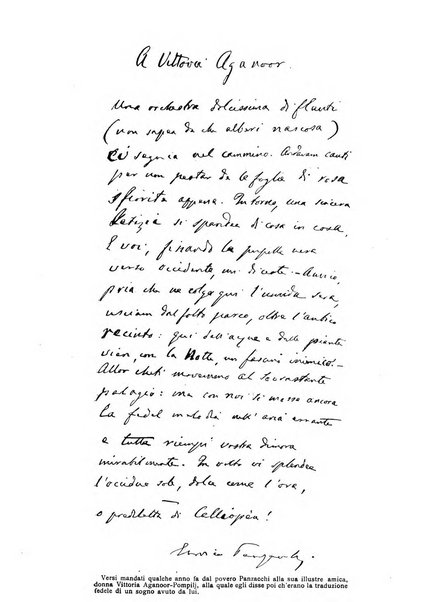 A Vittoria Aganoor.
Una orchestra dolcissima di flauti
(non sapea da che alberi nascosa)
ci seguia nel cammino. Andavam cauti
per non pestar de le foglie di rosa
sfiorita appena. Intorno, una sincera
letizia si spandea di cosa in cosa.
E voi, fissando la pupilla nera
verso occidente, mi diceste: – Amico,
pria che ne colga qui l'umida sera,
usciam dal folto parco, oltre l'antico
recinto: qui dall'acqua e dalle piante
vien, con la Notte, un fascino inimico. –
Allor cheti movemmo al sovrastante
palagio: ma con noi si mosse ancora
la fedel melodia nell'aria errante
e tutta riempì vostra dimora
mirabilmente. In volto vi splendea
l'occiduo sole, dolce come l'ora,
o prediletta di Calliopèa!
Enrico Panzacchi.
Versi mandati qualche anno fa dal povero Panzacchi alla sua illustre amica,
donna Vittoria Aganoor-Pompilj, alla quale egli disse poi ch'erano la traduzione
fedele di un sogno avuto da lui.